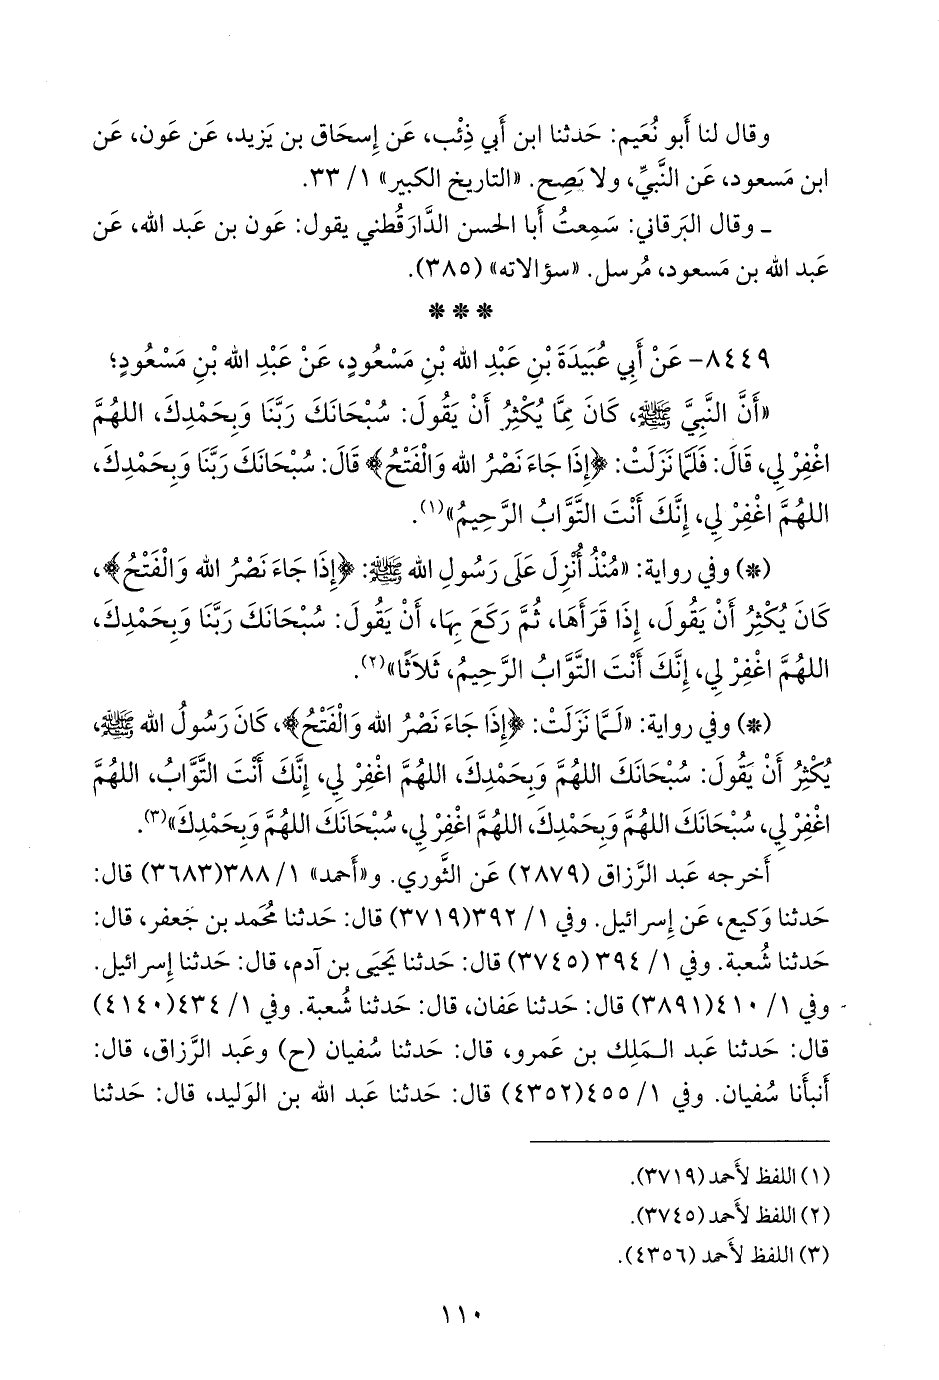 وقال لنا أَبو نُعَيم: حَدثنا ابن أَبي ذِئْب، عَن إِسحَاق بن يَزيد، عَن عَون، عَن
ابن مَسعود، عَن النَّبيِّ، ولا يَصِح. «التاريخ الكبير» ١/ ٣٣.
ـ وقال البَرقاني: سَمِعتُ أَبا الحسن الدَّارقُطني يقول: عَون بن عَبد الله، عَن
عَبد الله بن مَسعود، مُرسل. «سؤالاته» (٣٨٥).
* * *
٨٤٤٩- عَنْ أَبِي عُبَيدَةَ بْنِ عَبْدِ الله بْنِ مَسْعُودٍ، عَنْ عَبْدِ الله بْنِ مَسْعُودٍ؛
«أَنَّ النَّبِيَّ ﷺ، كَانَ مِمَّا يُكْثِرُ أَنْ يَقُولَ: سُبْحَانَكَ رَبَّنَا وَبِحَمْدِكَ، اللهُمَّ
اغْفِرْ لِي، قَالَ: فَلَمَّا نَزَلَتْ: ﴿إِذَا جَاءَ نَصْرُ الله وَالْفَتْحُ﴾ قَالَ: سُبْحَانَكَ رَبَّنَا وَبِحَمْدِكَ،
اللهُمَّ اغْفِرْ لِي، إِنَّكَ أَنْتَ التَّوَّابُ الرَّحِيمُ»(١).
(*) وفي رواية: «مُنْذُ أُنْزِلَ عَلَى رَسُولِ الله ﷺ: ﴿إِذَا جَاءَ نَصْرُ الله وَالْفَتْحُ﴾،
كَانَ يُكْثِرُ أَنْ يَقُولَ، إِذَا قَرَأَهَا، ثُمَّ رَكَعَ بِهَا، أَنْ يَقُولَ: سُبْحَانَكَ رَبَّنَا وَبِحَمْدِكَ،
اللهُمَّ اغْفِرْ لِي، إِنَّكَ أَنْتَ التَّوَّابُ الرَّحِيمُ، ثَلاَثًا»(٢).
(*) وفي رواية: «لَـمَّا نَزَلَتْ: ﴿إِذَا جَاءَ نَصْرُ الله وَالْفَتْحُ﴾، كَانَ رَسُولُ الله ﷺ،
يُكْثِرُ أَنْ يَقُولَ: سُبْحَانَكَ اللهُمَّ وَبِحَمْدِكَ، اللهُمَّ اغْفِرْ لِي، إِنَّكَ أَنْتَ التَّوَّابُ، اللهُمَّ
اغْفِرْ لِي، سُبْحَانَكَ اللهُمَّ وَبِحَمْدِكَ، اللهُمَّ اغْفِرْ لِي، سُبْحَانَكَ اللهُمَّ وَبِحَمْدِكَ»(٣).
أَخرجه عَبد الرَّزاق (٢٨٧٩) عَن الثَّوري. و«أَحمد» ١/ ٣٨٨(٣٦٨٣) قال:
حَدثنا وَكيع، عَن إِسرائيل. وفي ١/ ٣٩٢(٣٧١٩) قال: حَدثنا مُحمد بن جَعفر، قال:
حَدثنا شُعبة. وفي ١/ ٣٩٤(٣٧٤٥) قال: حَدثنا يَحيَى بن آدم، قال: حَدثنا إِسرائيل.
وفي ١/ ٤١٠(٣٨٩١) قال: حَدثنا عَفان، قال: حَدثنا شُعبة. وفي ١/ ٤٣٤(٤١٤٠)
قال: حَدثنا عَبد الـمَلِك بن عَمرو، قال: حَدثنا سُفيان (ح) وعَبد الرَّزاق، قال:
أَنبأَنا سُفيان. وفي ١/ ٤٥٥(٤٣٥٢) قال: حَدثنا عَبد الله بن الوَليد، قال: حَدثنا
(١) اللفظ لأَحمد (٣٧١٩).
(٢) اللفظ لأَحمد (٣٧٤٥).
(٣) اللفظ لأَحمد (٤٣٥٦).
١١٠